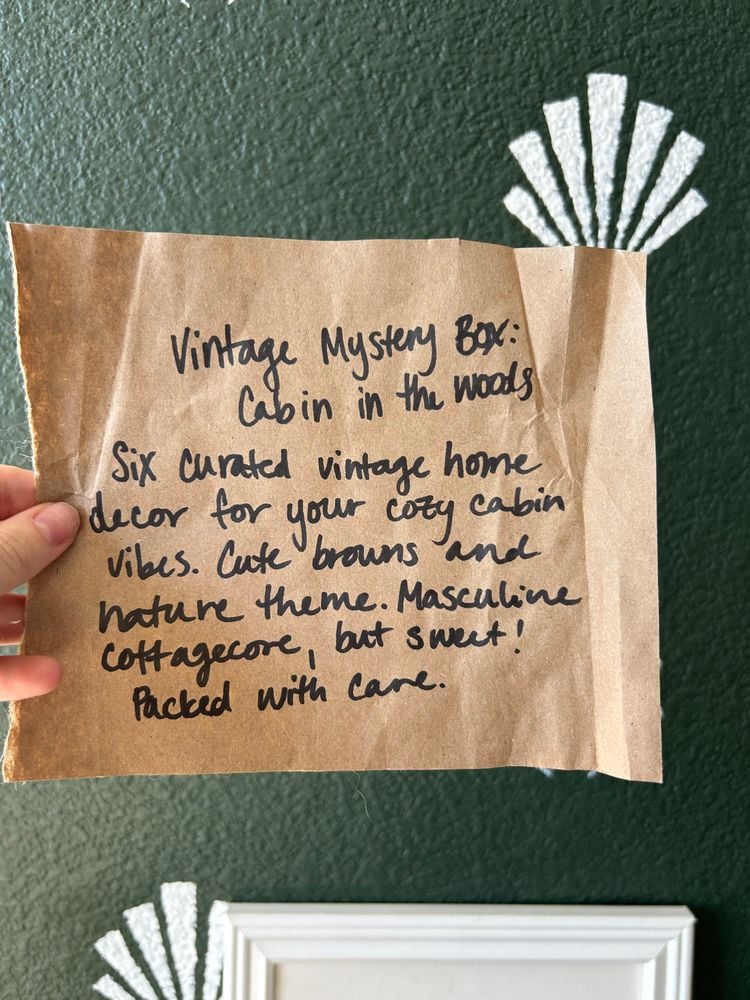 Vintage Mystery Box:
Cabin in the woods
Six curated vintage home
decor for your cozy cabin
vibes. Cute browns and
nature theme. Masculine
cottagecore, but sweet!
Packed with care.